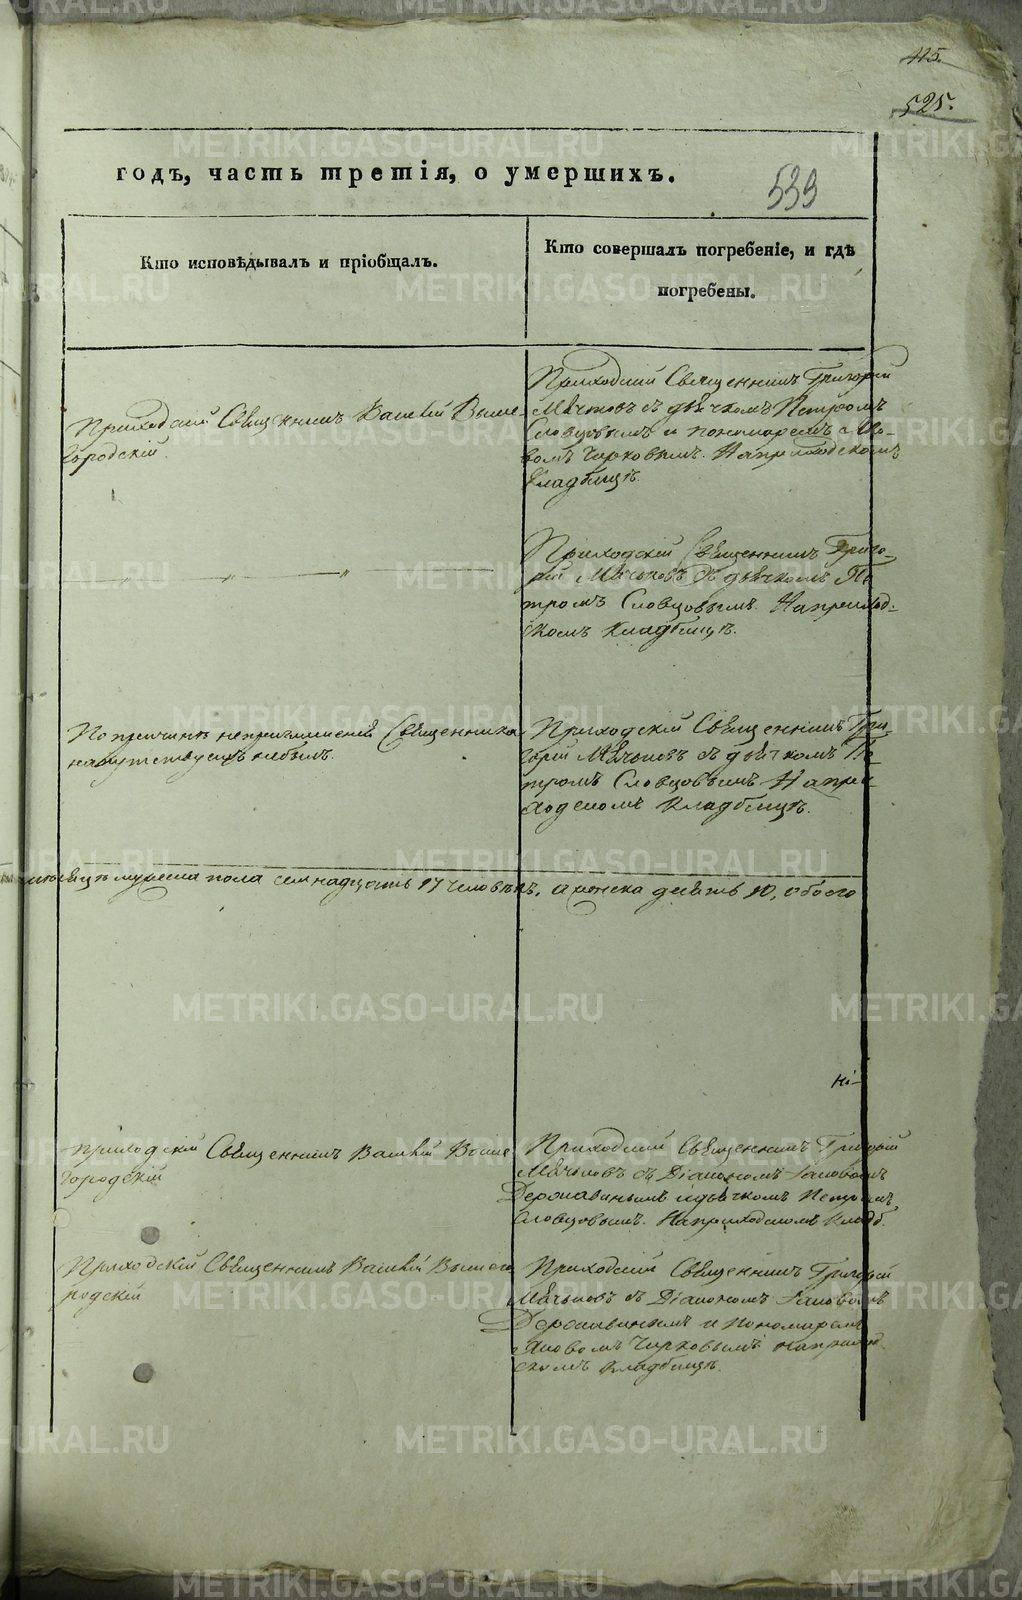 415.
525.
годъ, часть третія, о умершихъ.
539
Кто исповѣдывалъ и пріобщалъ.
Кто совершалъ погребеніе, и гдѣ
погребены.
Приходскій Священникъ Василій Выше-
городскій.
Приходскій Священникъ Григорій
съ дьячкомъ Петромъ
Словцовымъ и пономаремъ Іяко-
вомъ Чирковымъ. На приходскомъ
кладбищѣ.
— „ — „ — „ —
Приходскій Священникъ Григо-
рій съ дьячкомъ Пе-
тромъ Словцовымъ. На приход-
скомъ кладбищѣ.
По причинѣ Священника
небылъ.
Приходскій Священникъ Гри-
горій съ дьячкомъ Пе-
тромъ Словцовымъ На при-
ходскомъ кладбищѣ.
мужеска пола семнадцать 17 человѣкъ, а женска десять 10, обоего
Приходскій Священникъ Василій Выше
городскій
Приходскій Священникъ Григорій
съ Діакономъ Іаковомъ
Державинымъ и дьячкомъ Петромъ
Словцовымъ. На приходскомъ кладб.
Приходскій Священникъ Василій Вышего
родскій
Приходскій Священникъ Григорій
съ Діакономъ Іаковомъ
Державинымъ и Пономаремъ
Іяковомъ Чирковымъ на приход
скомъ кладбищѣ.
METRIKI.GASO-URAL.RU